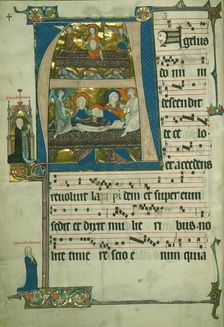 Angelus
domi ni
descendit
de ce lo
et accedens
revoluit lapi dem et super eum
sedit et dixit mu lie ri bus no
lite time re scio e nim qui a